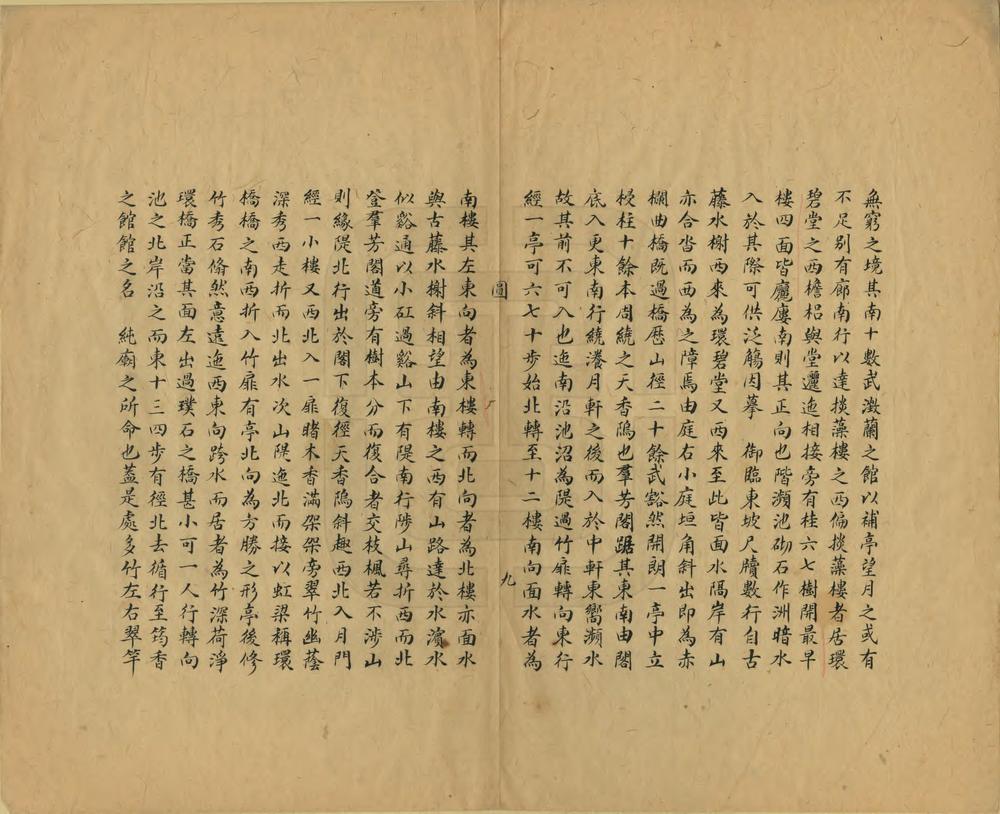 無窮之境其南十數武澂蘭之館以補亭望月之或有
不足别有廊南行以達掞藻樓之西偏掞藻樓者居環
碧堂之西檐梠與堂邐迤相接旁有桂六七樹開最早
樓四面皆麗廔南則其正向也階瀕池砌石作洲暗水
入於其際可供泛觴因摹 御臨東坡尺牘數行自古
藤水榭西來為環碧堂又西來至此皆面水隔岸有山
亦合沓而西為之障焉由庭右小庭垣角斜出即為赤
欄曲橋既過橋歷山徑二十餘武豁然開朗一亭中立
梫柱十餘本周繞之天香隝也羣芳閣踞其東南由閣
底入更東南行繞瀁月軒之後而入於中軒東嚮瀕水
故其前不可入也迤南沿池沼為隄過竹扉轉向東行
經一亭可六七十步始北轉至十二樓南向面水者為
圖
九
南樓其左東向者為東樓轉而北向者為北樓亦面水
與古藤水榭斜相望由南樓之西有山路達於水濱水
似谿通以小矼過谿山下有隄南行陟山尋折西而北
登羣芳閣道旁有樹本分而復合者交枝楓若不涉山
則緣隄北行出於閣下復徑天香隝斜趣西北入月門
經一小樓又西北入一扉睹木香滿架架旁翠竹幽蔭
深秀西走折而北出水次山隄迤北而接以虹梁稱環
橋橋之南西折入竹扉有亭北向為方勝之形亭後修
竹秀石翛然意遠迤西東向跨水而居者為竹深荷淨
環橋正當其面左出過璞石之橋甚小可一人行轉向
池之北岸沿之而東十三四步有徑北去循行至筠香
之館館之名 純廟之所命也蓋是處多竹左右翠竿